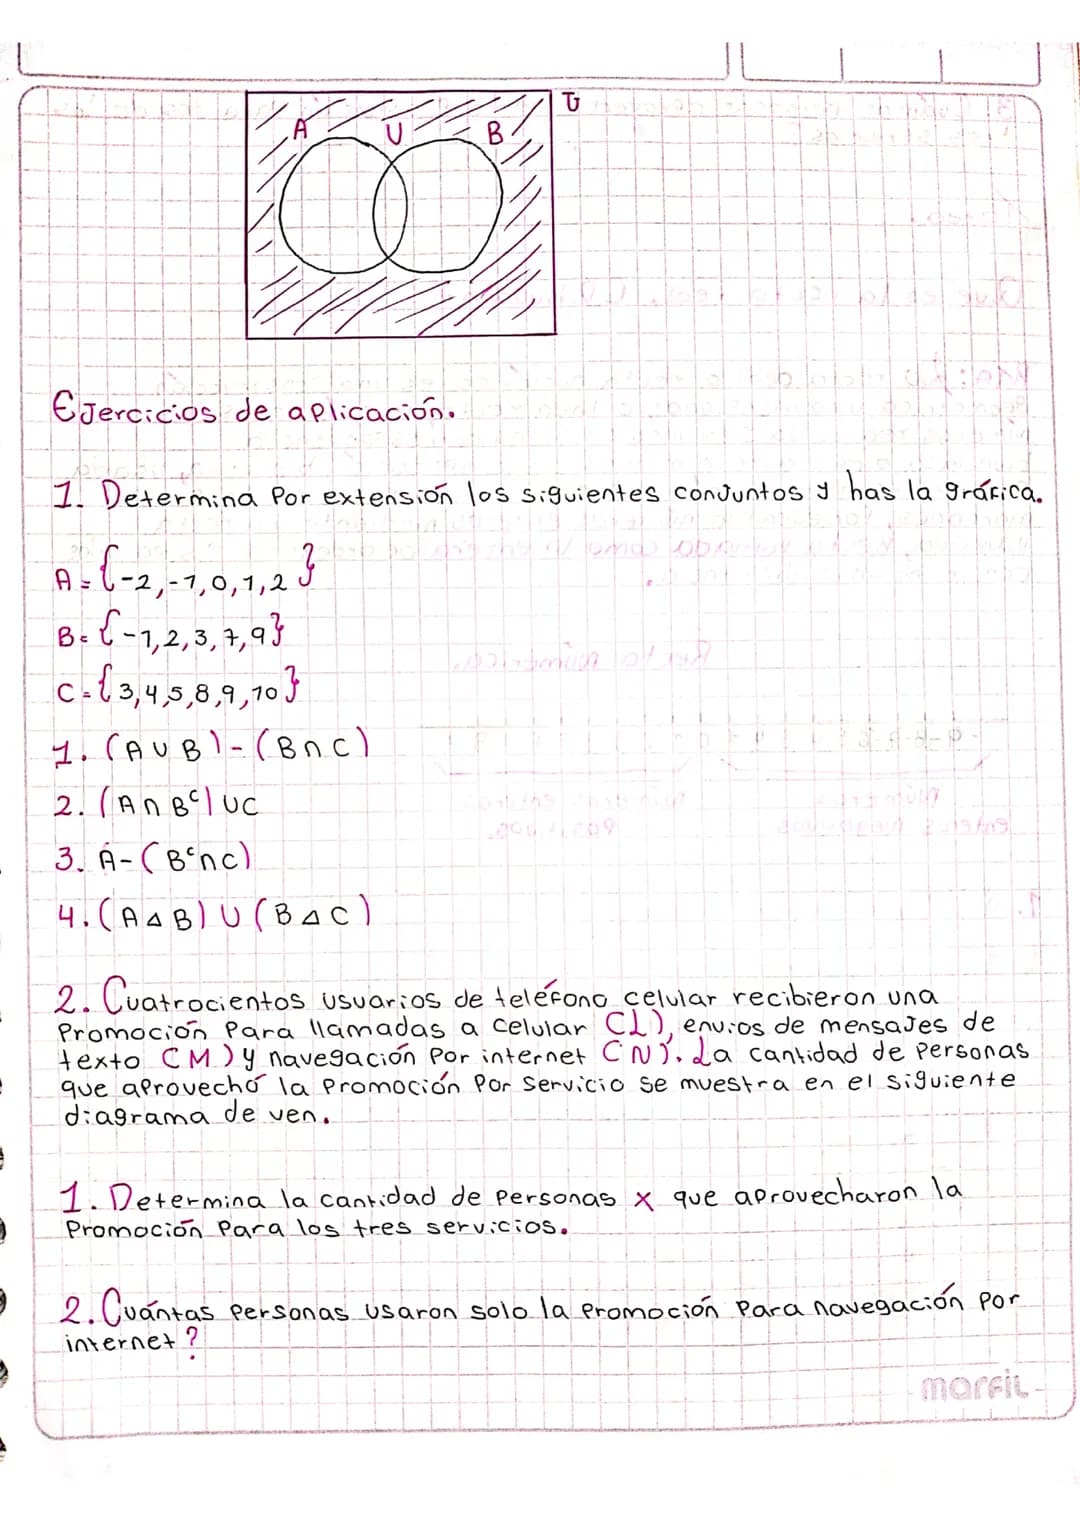 U
A
U
B
Ejercicios de aplicación.
1. Determina Por extensión los siguientes conjuntos y has la gráfica.
A = {-2,-1,0,1,2}
B = {-1,2,3,7,9}
C = {3,4,5,8,9,10}
1. (A ∪ B) - (B ∩ C)
2. (A ∩ Bᶜ) ∪ C
3. A - (Bᶜ ∩ C)
4. (A Δ B) ∪ (B Δ C)
2. Cuatrocientos usuarios de teléfono celular recibieron una
Promoción Para llamadas a celular (L), envios de mensajes de
texto (M) y navegación Por internet (N). La cantidad de Personas
que aprovechó la Promoción Por Servicio se muestra en el siguiente
diagrama de ven.
1. Determina la cantidad de personas x que aprovecharon la
Promoción Para los tres servicios.
2. Cuántas Personas usaron solo la Promoción Para navegación Por
internet?
marfil